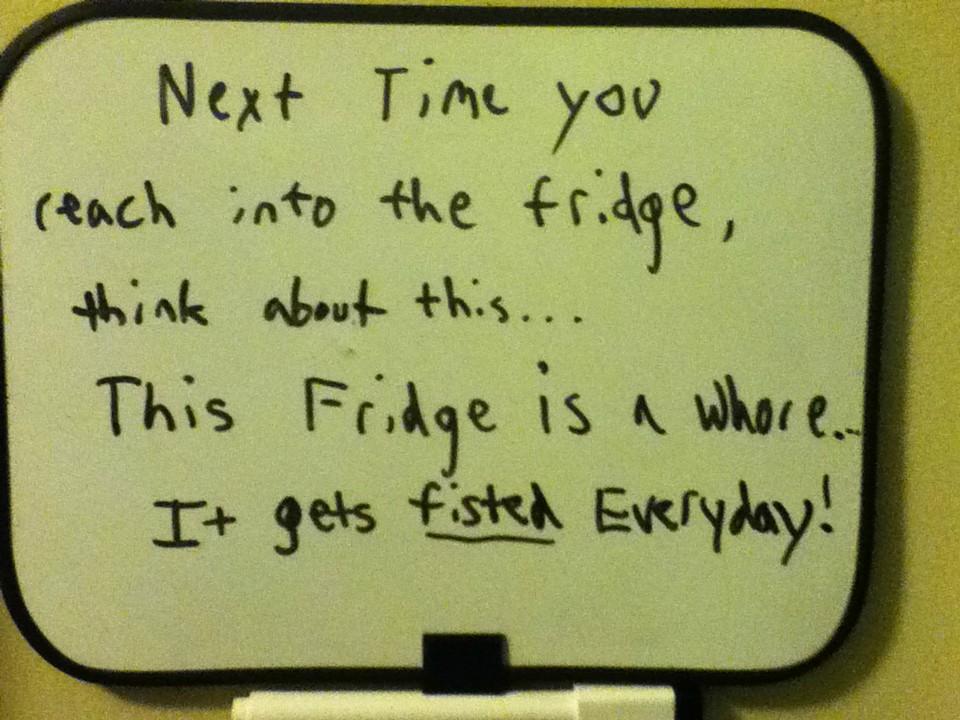 Next Time you
reach into the fridge,
think about this...
This Fridge is a whore...
It gets fisted Everyday!